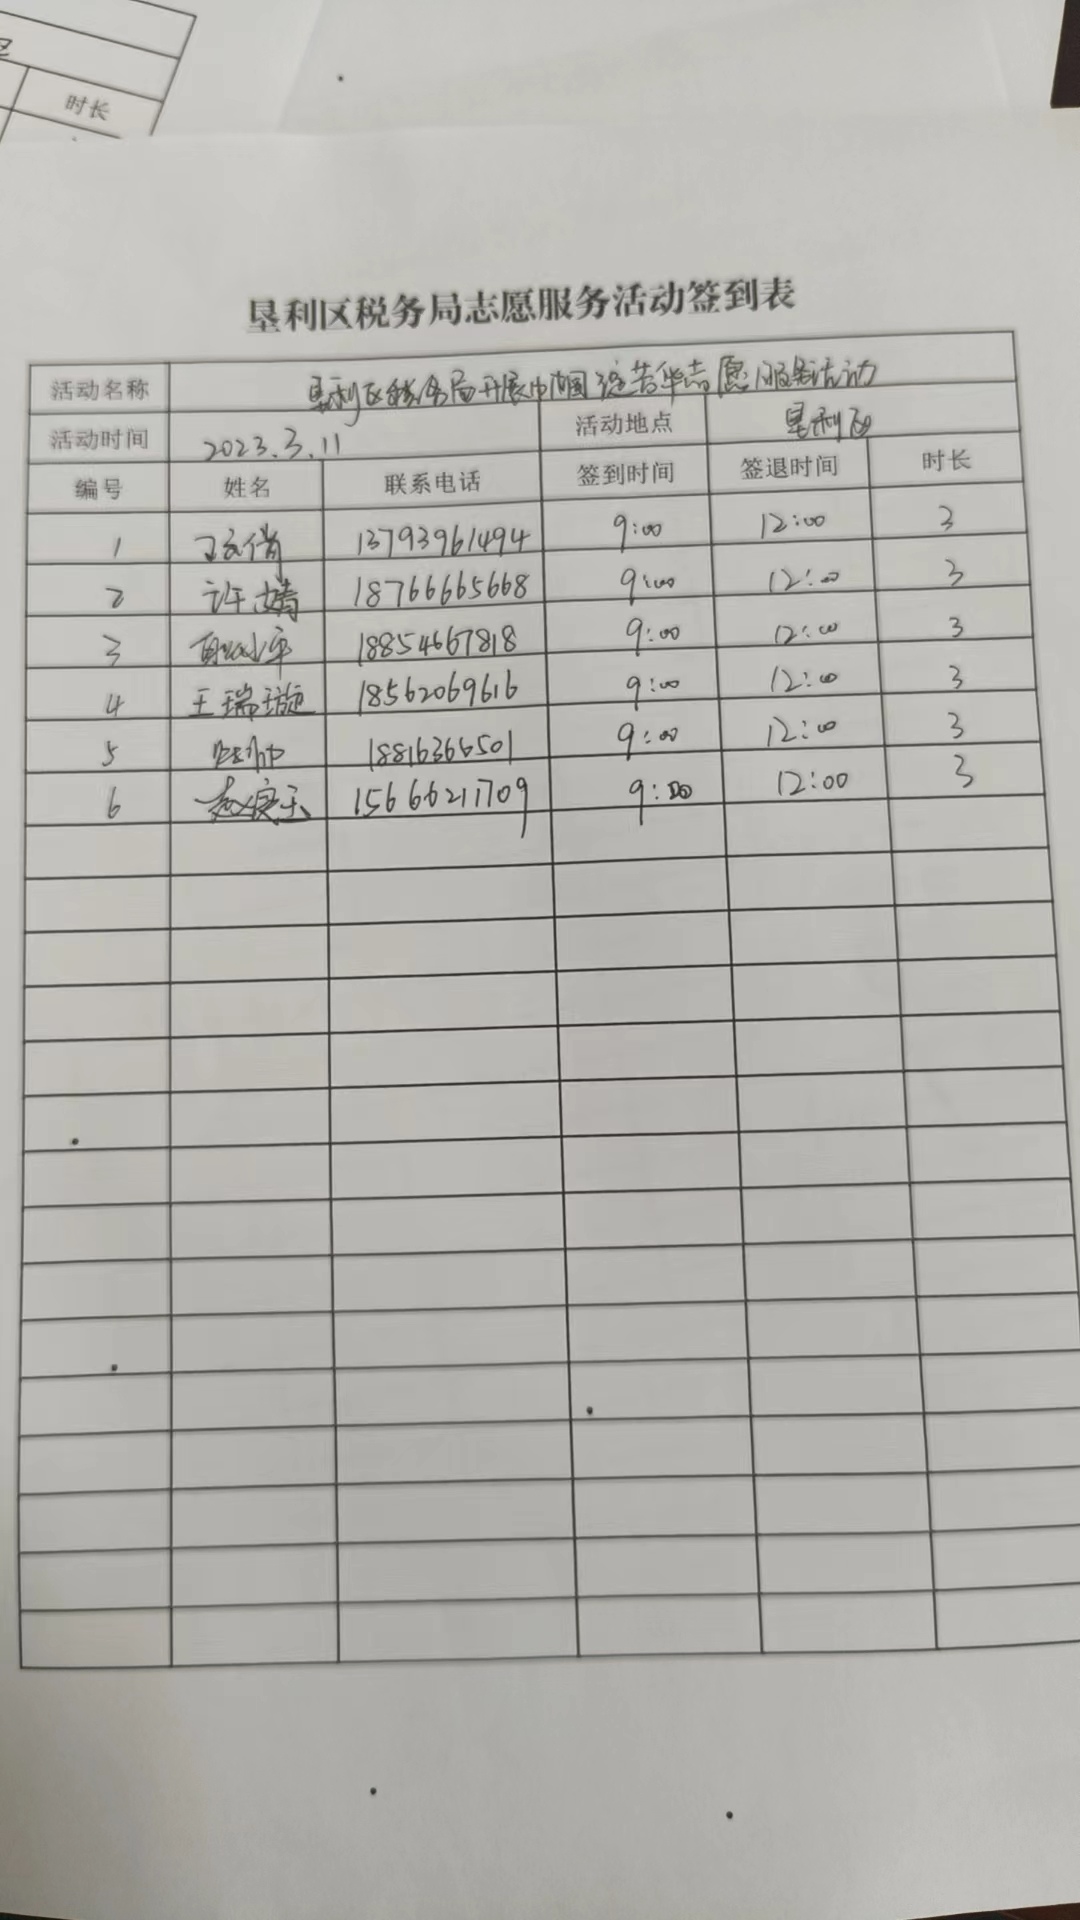 时长
垦利区税务局志愿服务活动签到表
活动名称 垦利区税务局开展巾帼绽芳华志愿服务活动
活动时间 2023.3.11 活动地点 垦利区
编号 姓名 联系电话 签到时间 签退时间 时长
1 13793961494 9:00 12:00 3
2 许婧 18766665668 9:00 12:00 3
3 18854667818 9:00 12:00 3
4 王瑞璇 18562069616 9:00 12:00 3
5 18816366501 9:00 12:00 3
6 15666211709 9:00 12:00 3